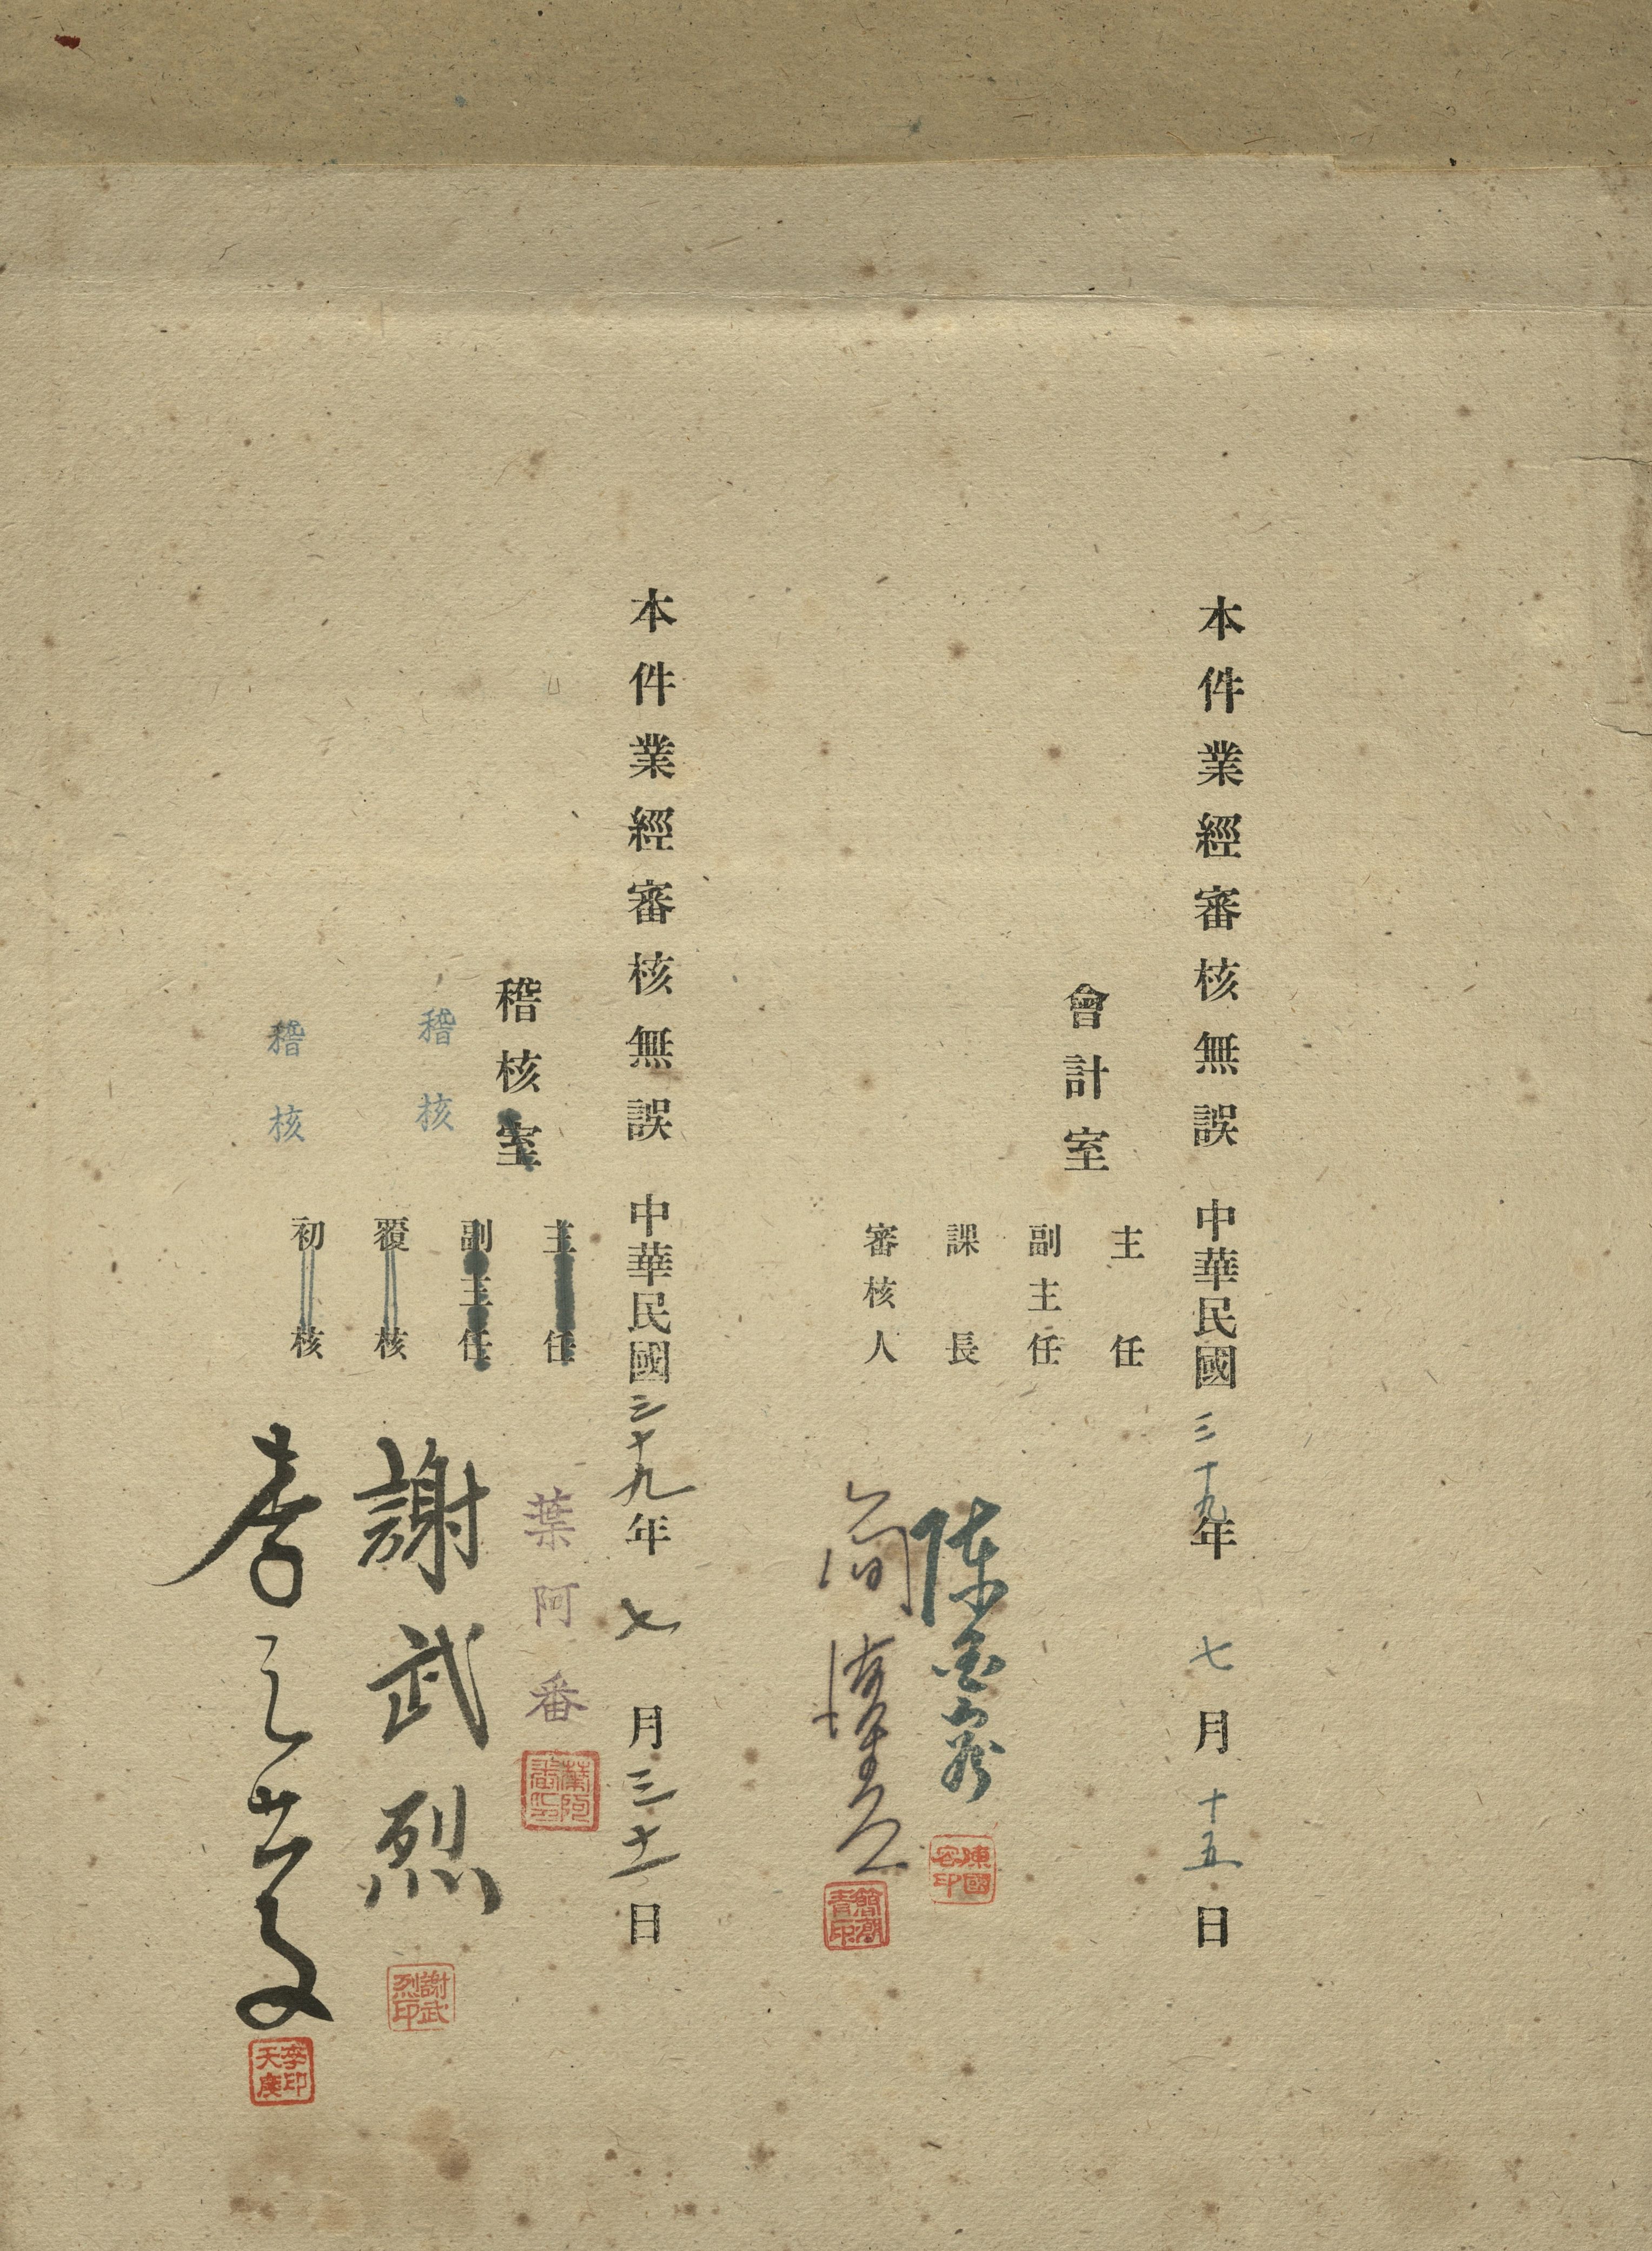 本件業經審核無誤 中華民國三十九年七月十五日
會計室
主任
副主任
課長 陳國容
陳國容印
審核人 簡清
簡清印
本件業經審核無誤 中華民國三十九年七月三十一日
稽核室
主任
葉阿番
葉阿番印
副主任
稽核
覆核 謝武烈
謝武烈印
稽核
初核 李天慶
李天慶印